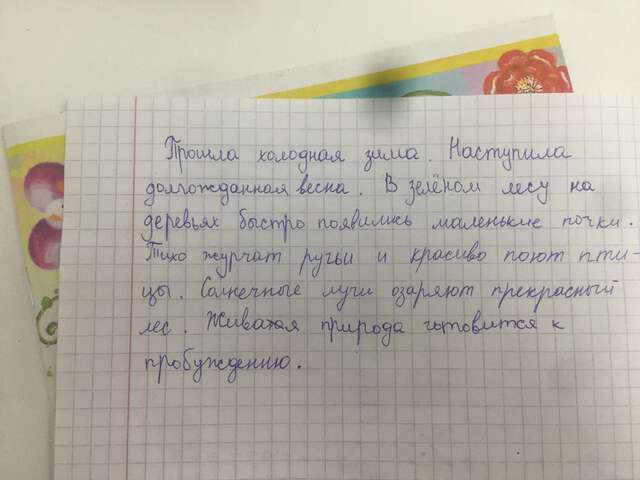 Прошла холодная зима. Наступила
долгожданная весна. В зелёном лесу на
деревьях быстро появились маленькие почки.
Тихо журчат ручьи и красиво поют пти-
цы. Солнечные лучи озаряют прекрасный
лес. Живатая природа готовится к
пробуждению.